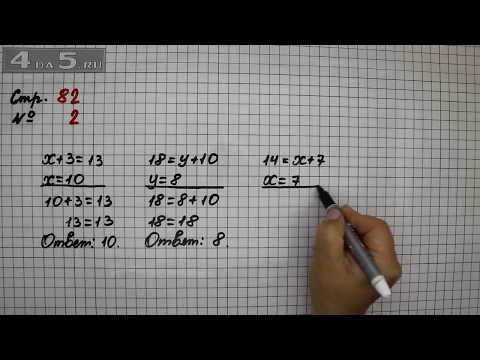 4DA5.RU
Стр. 82
№ 2
x+3=13
x=10
10+3=13
13=13
Ответ: 10.
18=y+10
y=8
18=8+10
18=18
Ответ: 8.
14=x+7
x=7